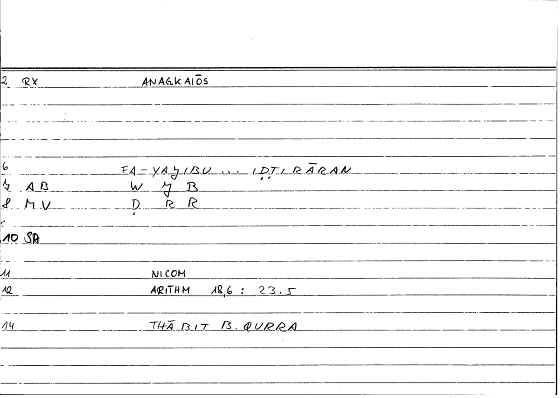 2 RX ANAGKAIŌS
6 FA-YAǦIBU ... IḌṬIRĀRAN
7 AB W Ǧ B
8 MV Ḍ R R
10 SA
11 NICOM
12 ARITHM 18,6 : 23.5
14 THĀBIT B. QURRA